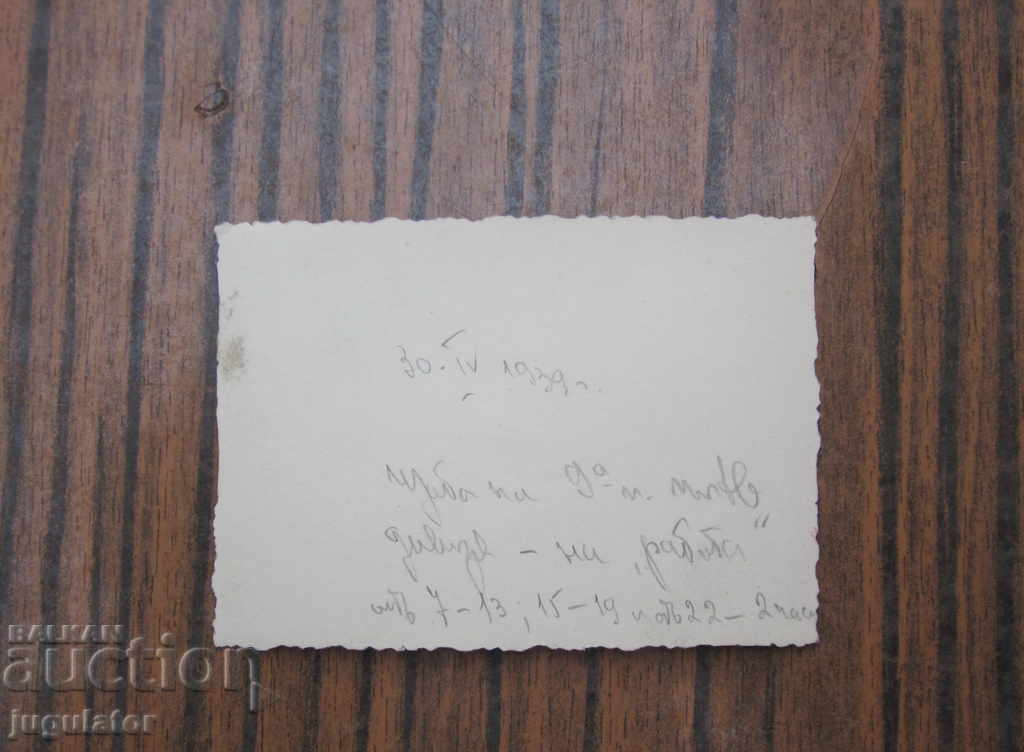 30. IV 1939 г.
на 9ᵃ п.
– на „работа“
отъ 7–13; 15–19 и отъ 22– 2 часа
BALKAN
auction
jugulator